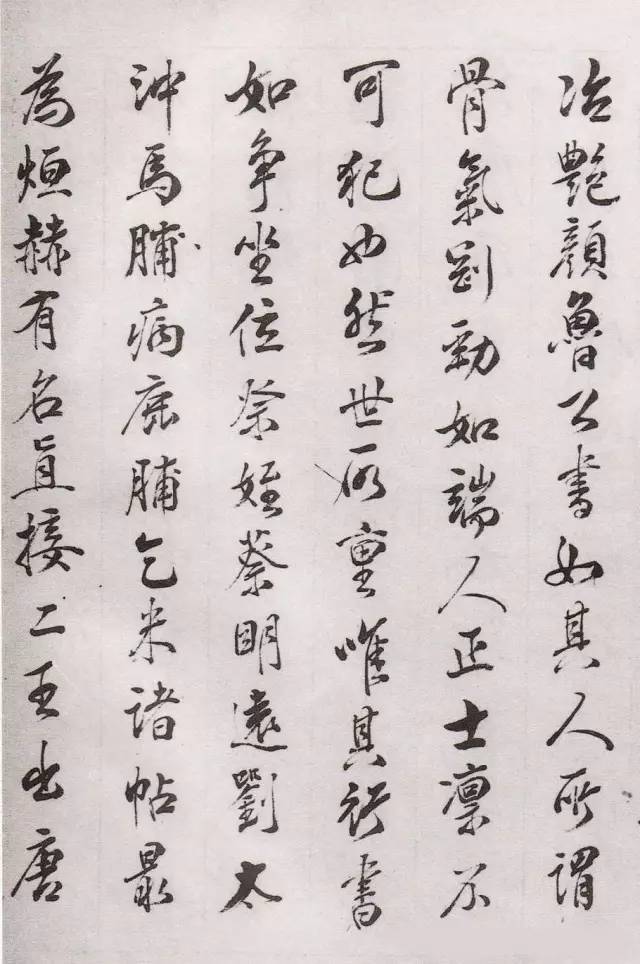 冶艷顏魯公書如其人所謂
骨氣剛勁如端人正士凛不
可犯也然世所重唯其行書
如争坐位祭姪蔡明遠劉太
沖馬脯病鹿脯乞米諸帖最
為烜赫有名直接二王出唐